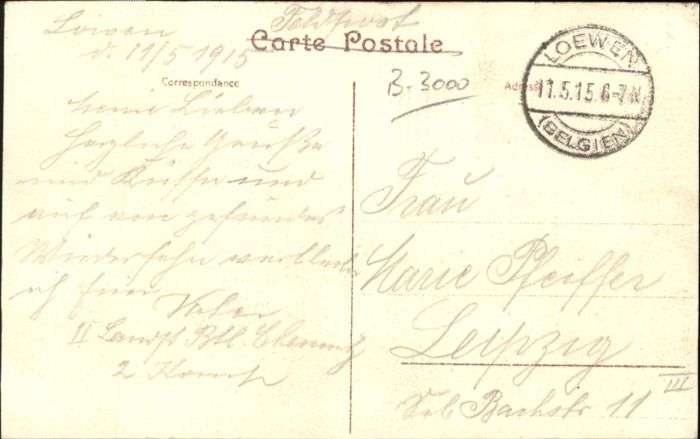 Feldpost
Carte Postale
Löwen
d. 11/5 1915
Correspondance
Meine Lieben
Herzliche Grüße
und Küsse und
auf ein gesundes
Wiedersehn verbleibe
ich Euer
Vater
II Landst. Btl. Chemnitz
2 Komp
B-3000
Adresse
LOEWEN
11.5.15. 6-7 N
(BELGIEN)
Frau
Marie Pfeiffer
Leipzig
III
Seb Bachstr 11